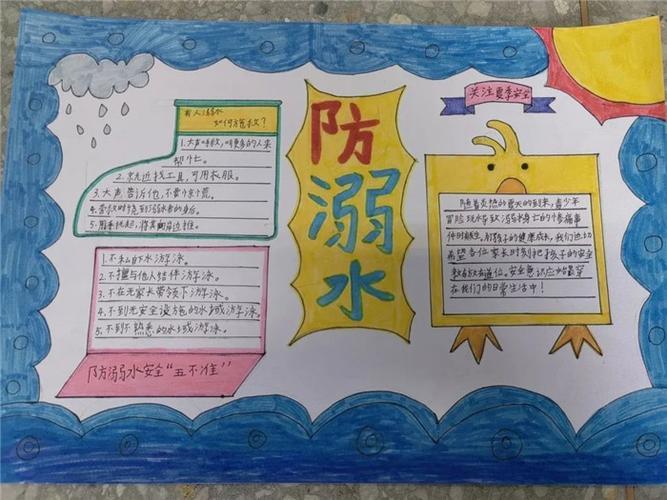 有人溺水
如何施救？
1.大声呼救，叫更多的人来
帮忙。
2.就近找工具，可用衣服。
3.大声告诉他，不要惊慌。
4.营救时绕到溺水者的身后。
5.用手托起，将其向岸边推。
1.不私自下水游泳。
2.不擅与他人结伴游泳。
3.不在无家长带领下游泳。
4.不到无安全设施的水域游泳。
5.不到不熟悉的水域游泳。
防溺水安全“五不准”
防
溺
水
关注夏季安全
随着炎热的夏天的到来，青少年
冒险玩水导致溺水身亡的个案痛事
件时有发生，为孩子的健康成长，我们迫切
希望各位家长时刻把孩子的安全
教育放在首位，安全意识应始终穿
在我们的日常生活中！